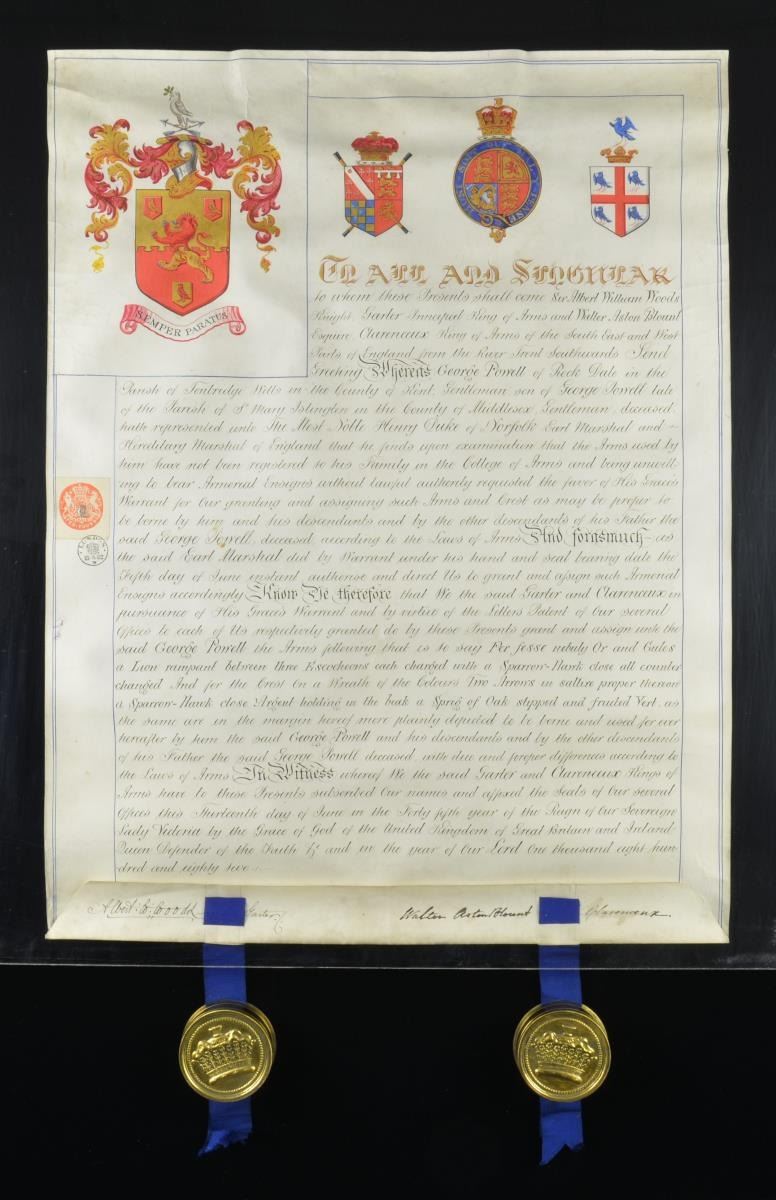 HONI SOIT QUI MAL Y PENSE
SEMPER PARATUS
TO ALL AND SINGULAR
to whom these Presents shall come Sir Albert William Woods
Knight Garter Principal King of Arms and Walter Aston Blount
Esquire Clarenceux King of Arms of the South East and West
Parts of England from the River Trent Southwards Send
Greeting Whereas George Powell of Rock Dale in the
Parish of Tonbridge Wells in the County of Kent, Gentleman, son of George Powell late
of the Parish of St Mary Islington in the County of Middlesex, Gentleman, deceased,
hath represented unto The Most Noble Henry Duke of Norfolk Earl Marshal and
Hereditary Marshal of England that he finds upon examination that the Arms used by
him have not been registered to his Family in the College of Arms and being unwill
ing to bear Armorial Ensigns without lawful authority requested the favor of His Grace's
Warrant for Our granting and assigning such Arms and Crest as may be proper to
be borne by him and his descendants and by the other descendants of his Father the
said George Powell, deceased, according to the Laws of Arms And forasmuch as
the said Earl Marshal did by Warrant under his hand and seal bearing date the
Fifth day of June instant authorise and direct Us to grant and assign such Armorial
Ensigns accordingly Know Ye therefore that We the said Garter and Clarenceux in
pursuance of His Grace's Warrant and by virtue of the Letters Patent of Our several
Offices to each of Us respectively granted do by these Presents grant and assign unto the
said George Powell the Arms following that is to say Per fesse nebuly Or and Gules
a Lion rampant between three Escocheons each charged with a Sparrow-Hawk close all counter
changed And for the Crest On a Wreath of the Colours Two Arrows in saltire proper thereon
a Sparrow-Hawk close Argent holding in the beak a Sprig of Oak slipped and fructed Vert, as
the same are in the margin hereof more plainly depicted to be borne and used for ever
hereafter by him the said George Powell and his descendants and by the other descendants
of his Father the said George Powell deceased, with due and proper differences according to
the Laws of Arms In Witness whereof We the said Garter and Clarenceux Kings of
Arms have to these Presents subscribed Our names and affixed the Seals of Our several
Offices this Thirteenth day of June in the Forty fifth year of the Reign of Our Sovereign
Lady Victoria by the Grace of God of the United Kingdom of Great Britain and Ireland
Queen Defender of the Faith &c and in the year of Our Lord One thousand eight hun
dred and eighty two.
LONDON
Albert W. Woods Garter
Walter Aston Blount Clarenceux.